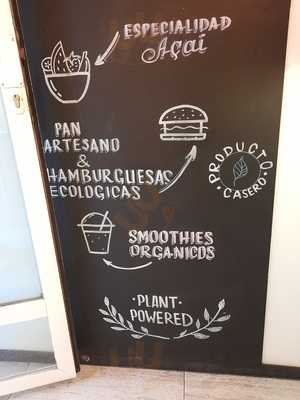 ESPECIALIDAD
Açaí
PAN
ARTESANO
&
HAMBURGUESAS
ECOLOGICAS
PRODUCTO
CASERO
SMOOTHIES
ORGANICOS
·PLANT·
POWERED